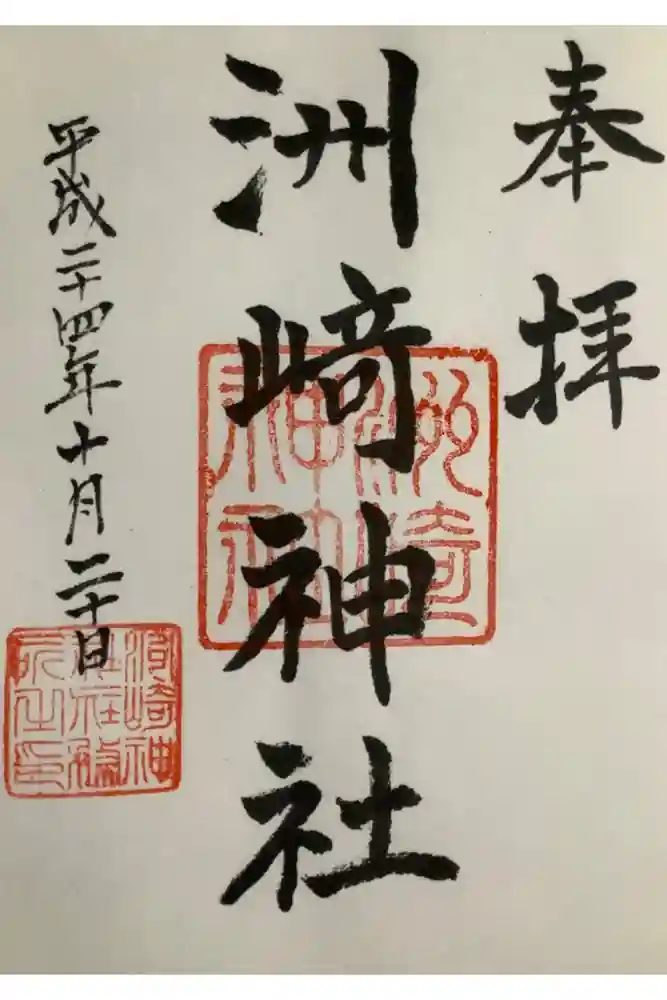 奉拝
洲﨑神社
平成二十四年十月二十日
洲崎神社